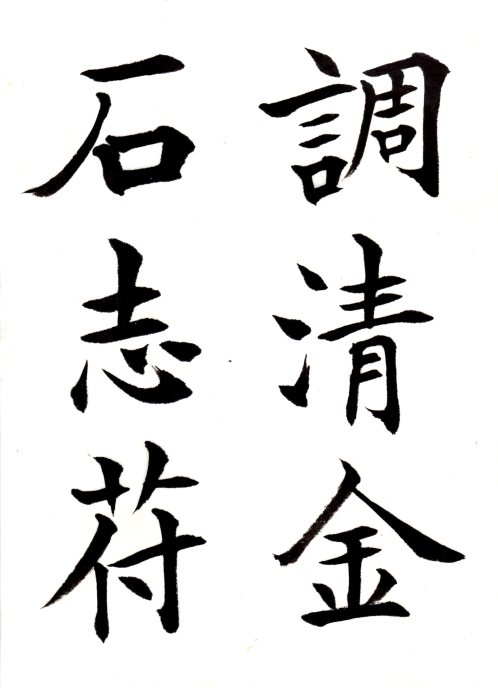 調清金
石志苻